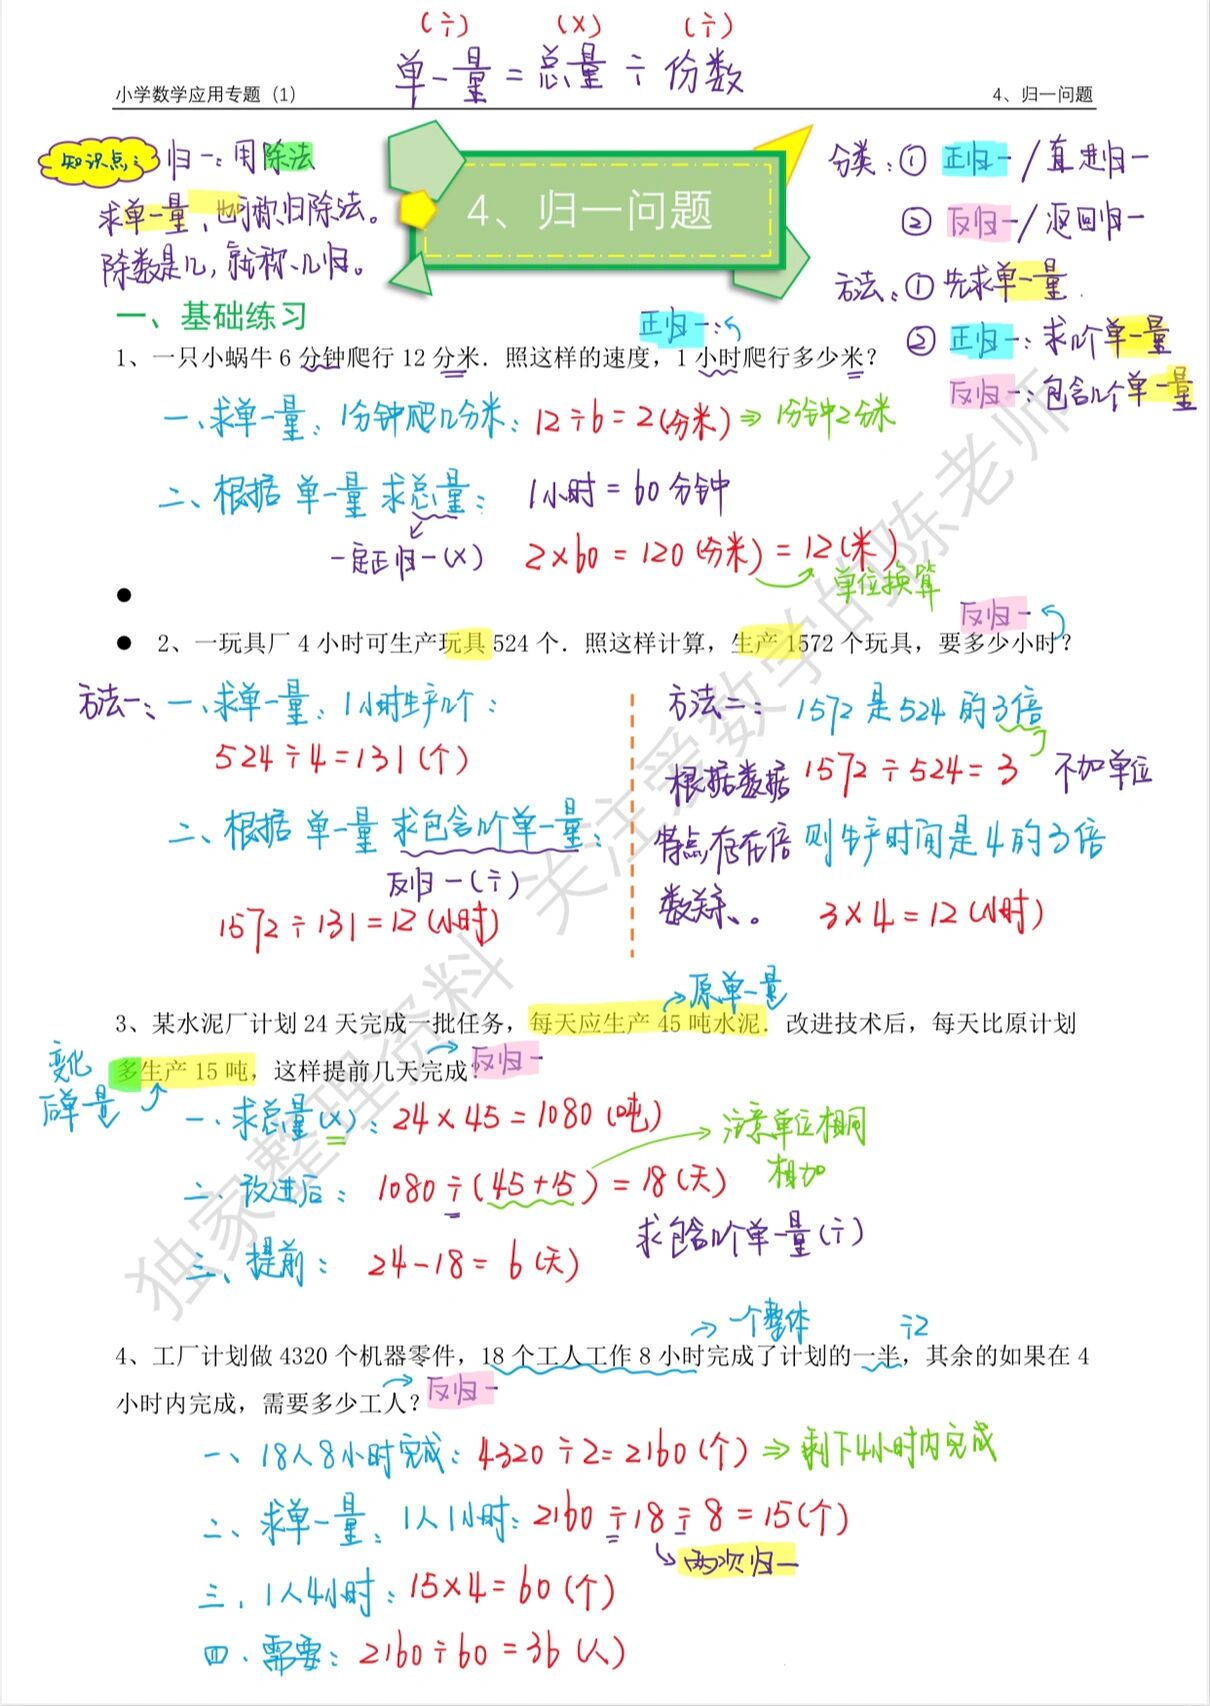 (÷) (×) (÷)
单一量=总量÷份数
小学数学应用专题（1）
4、归一问题
知识点：归一：用除法
求单一量、也可称归除法。
除数是几，就称几归。
4、归一问题
分类：① 正归一/直进归一
② 反归一/返回归一
方法：① 先求单一量.
② 正归一：求几个单一量
反归一：包含几个单一量
一、基础练习
正归一：
1、一只小蜗牛 6 分钟爬行 12 分米．照这样的速度，1 小时爬行多少米？
一、求单一量：1分钟爬几分米：12÷6=2(分米)⇒1分钟2分米
二、根据 单一量 求总量： 1小时=60分钟
一定正归一(×) 2×60=120(分米)=12(米)
单位换算
反归一
2、一玩具厂 4 小时可生产玩具 524 个．照这样计算，生产 1572 个玩具，要多少小时？
方法一：一、求单一量：1小时生产几个：
524÷4=131(个)
二、根据 单一量 求包含几个单一量：
反归一(÷)
1572÷131=12(小时)
方法二： 1572是524的3倍
根据数据 1572÷524=3 不加单位
特点，存在倍 则生产时间是4的3倍
数关系。 3×4=12(小时)
原单一量
3、某水泥厂计划 24 天完成一批任务，每天应生产 45 吨水泥．改进技术后，每天比原计划
多生产 15 吨，这样提前几天完成？
反归一
变化
后单一量
一、求总量(×)：24×45=1080(吨)
注意单位相同
相加
二、改进后： 1080÷(45+15)=18(天)
求包含几个单一量(÷)
三、提前： 24-18=6(天)
一个整体 ÷2
4、工厂计划做 4320 个机器零件，18 个工人工作 8 小时完成了计划的一半，其余的如果在 4
小时内完成，需要多少工人？
反归一
一、18人8小时完成：4320÷2=2160(个)⇒剩下4小时内完成
二、求单一量：1人1小时：2160÷18÷8=15(个)
两次归一
三、1人4小时：15×4=60(个)
四、需要：2160÷60=36(人)
独家整理资料 关注爱数学的陈老师